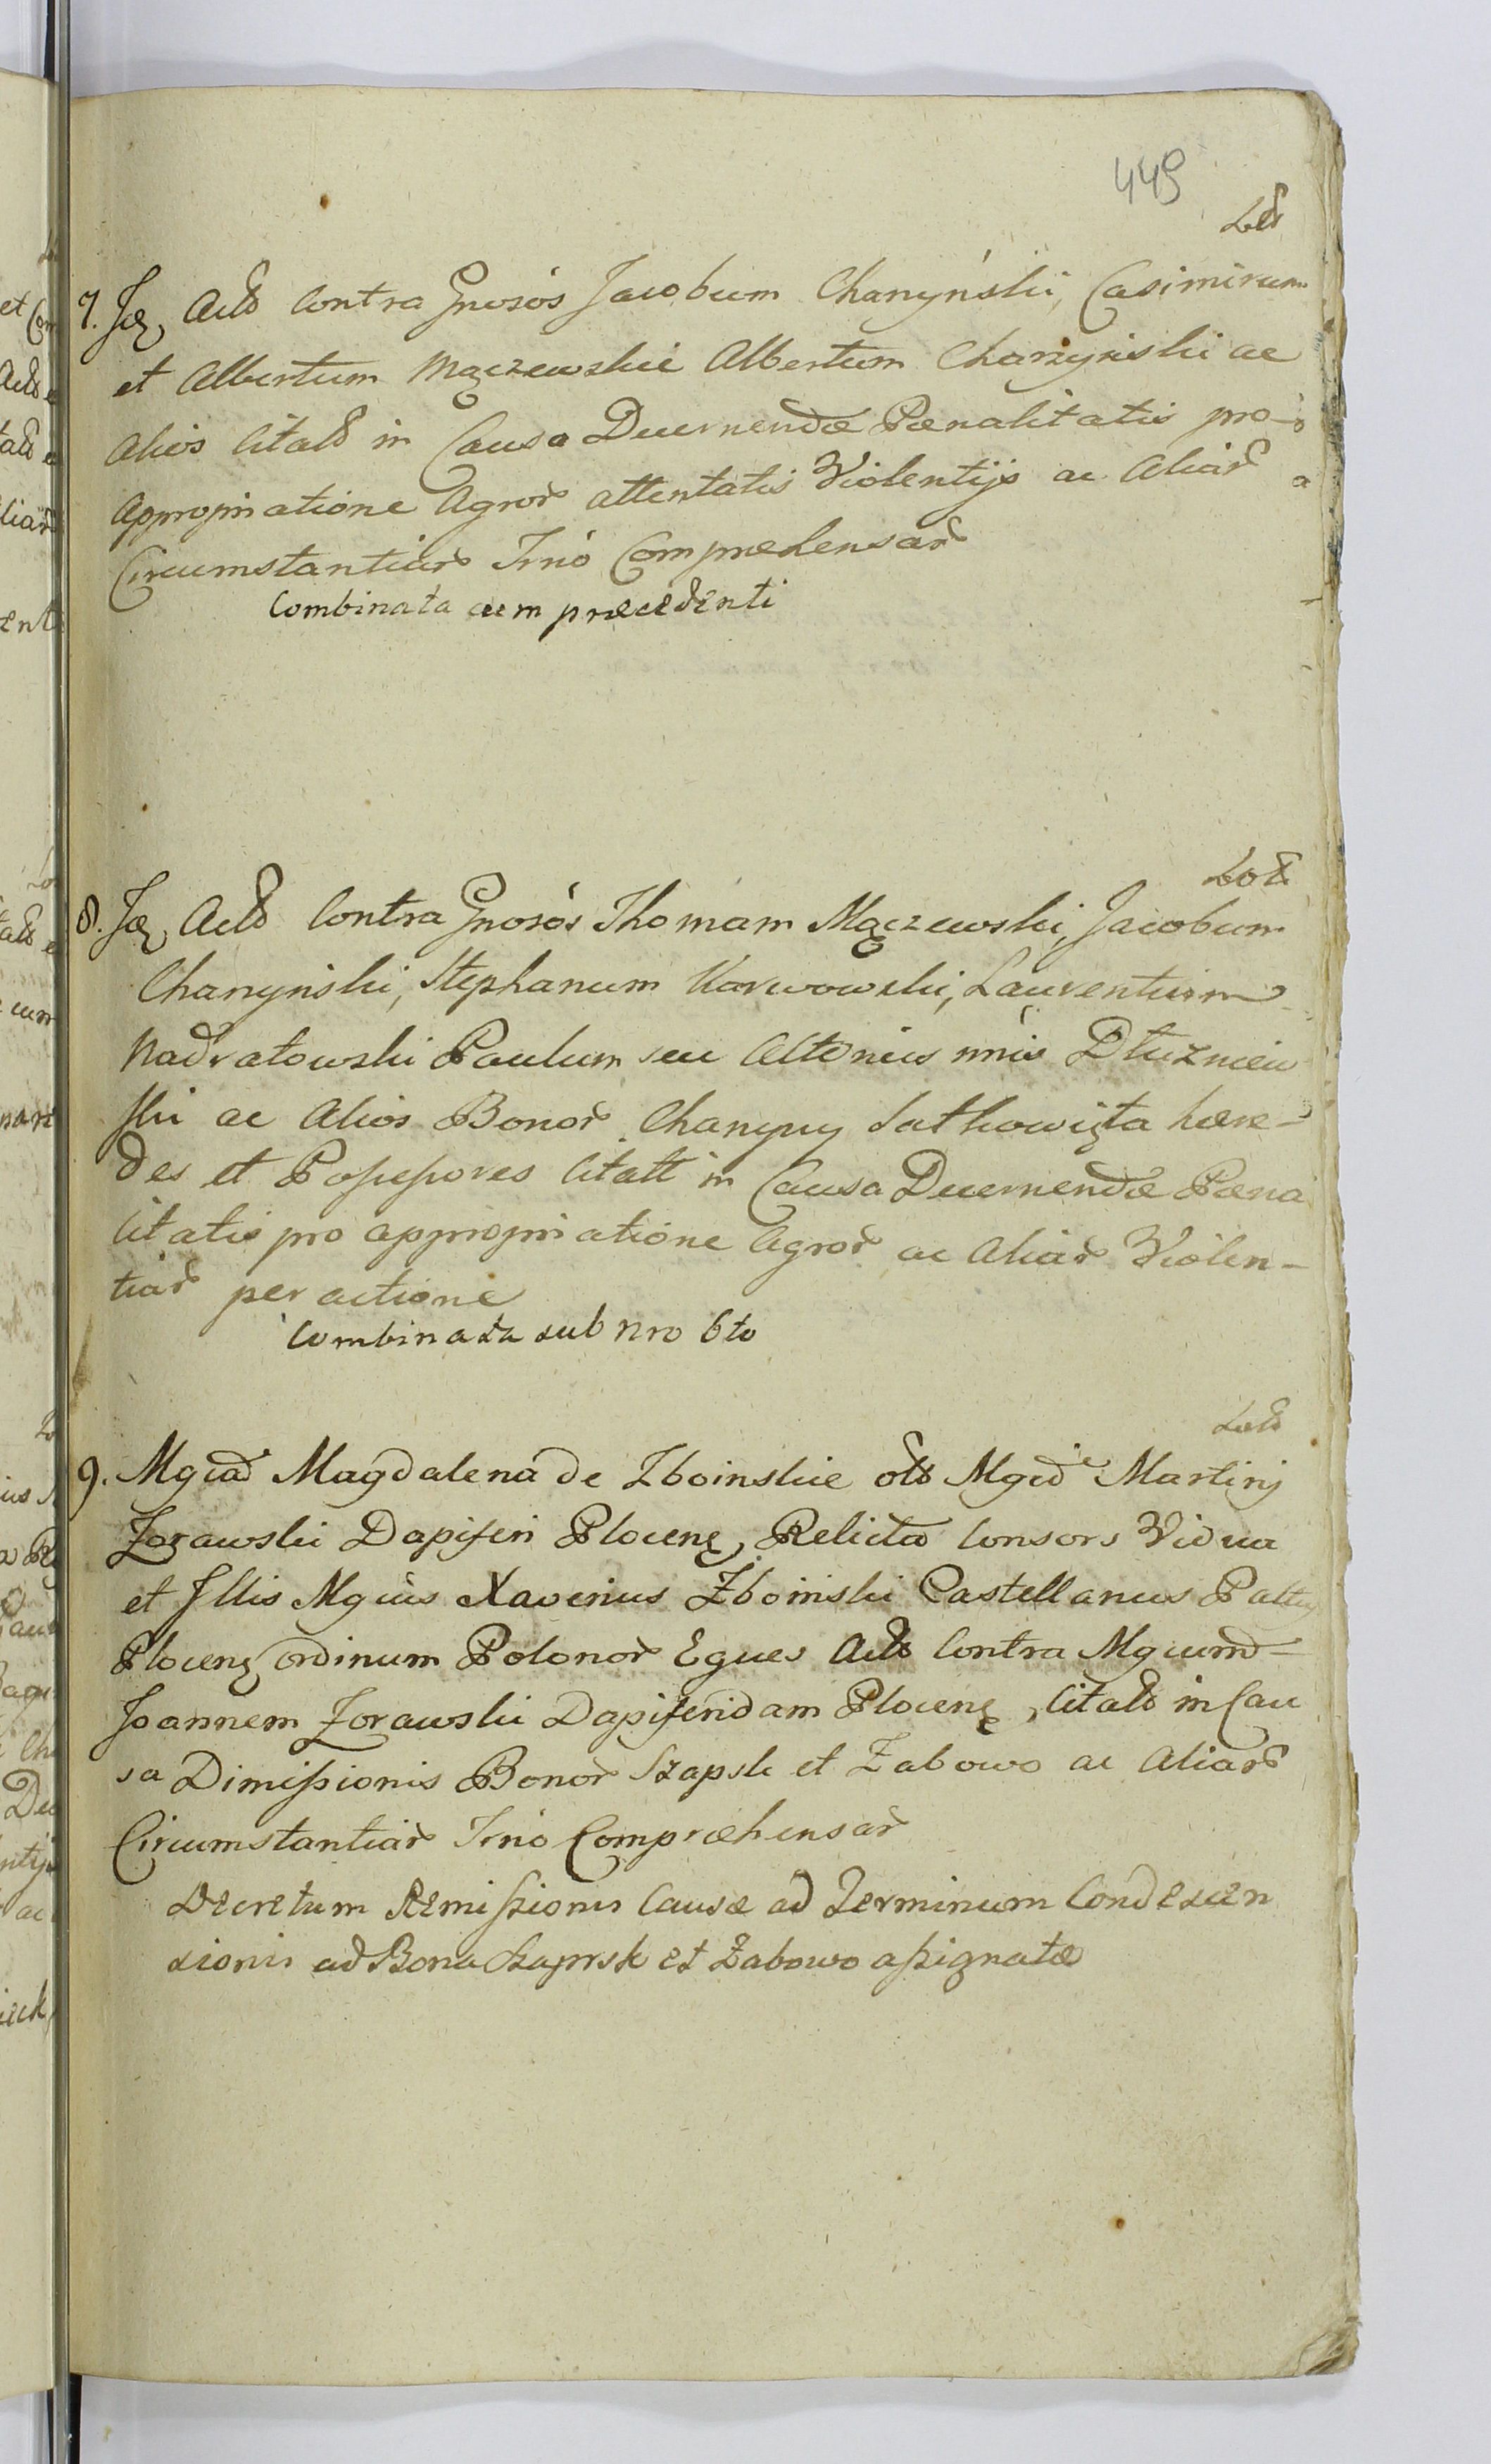 449
7. Contra Gnosós Jacobum Charzyński, Casimirum
et Albertum Mączewskie Albertum Charzyński ac
Alios Citatt in Causa Decernendæ Pœnalitatis pro
Appropriatione Agror attentatis Violentijs ac Aliar
Circumstantiar Trnó Compræhensar
Combinata cum præcedenti
8. Contra Gnosós Thomam Mączewski, Jacobum
Charzyński, Stephanum Karwowski, Laurentium
Nadratowski Paulum seu Altoriús nnis Dłużniew
ski ac Alios Bonor Charzyny hære-
des et Possessores Citatt in Causa Decernendæ Pœna
litatis pro appropriatione Agror ac Aliar Violen-
tiar peractione
Combinata sub Nro 6to
9. Mgcad Magdalena de Zboinskie Mgcd Martinj
Zorawski Dapiferi Plocen, Relicta Consors Vidua
et Illis Mgcus Xaverius Zboinski Castellanus
Plocen, Ordinum Polonor Eques Contra Mgcum
Joannem Zorawski Dapiferidam Plocen, Citatt in Cau
sa Dimissionis Bonor Szapsk et Zabowo ac Aliar
Circumstantiar Trnó Compræhensar
Decretum Remissionis Causæ ad Terminum Condescen
sionis ad Bona et Zabowo assignatæ